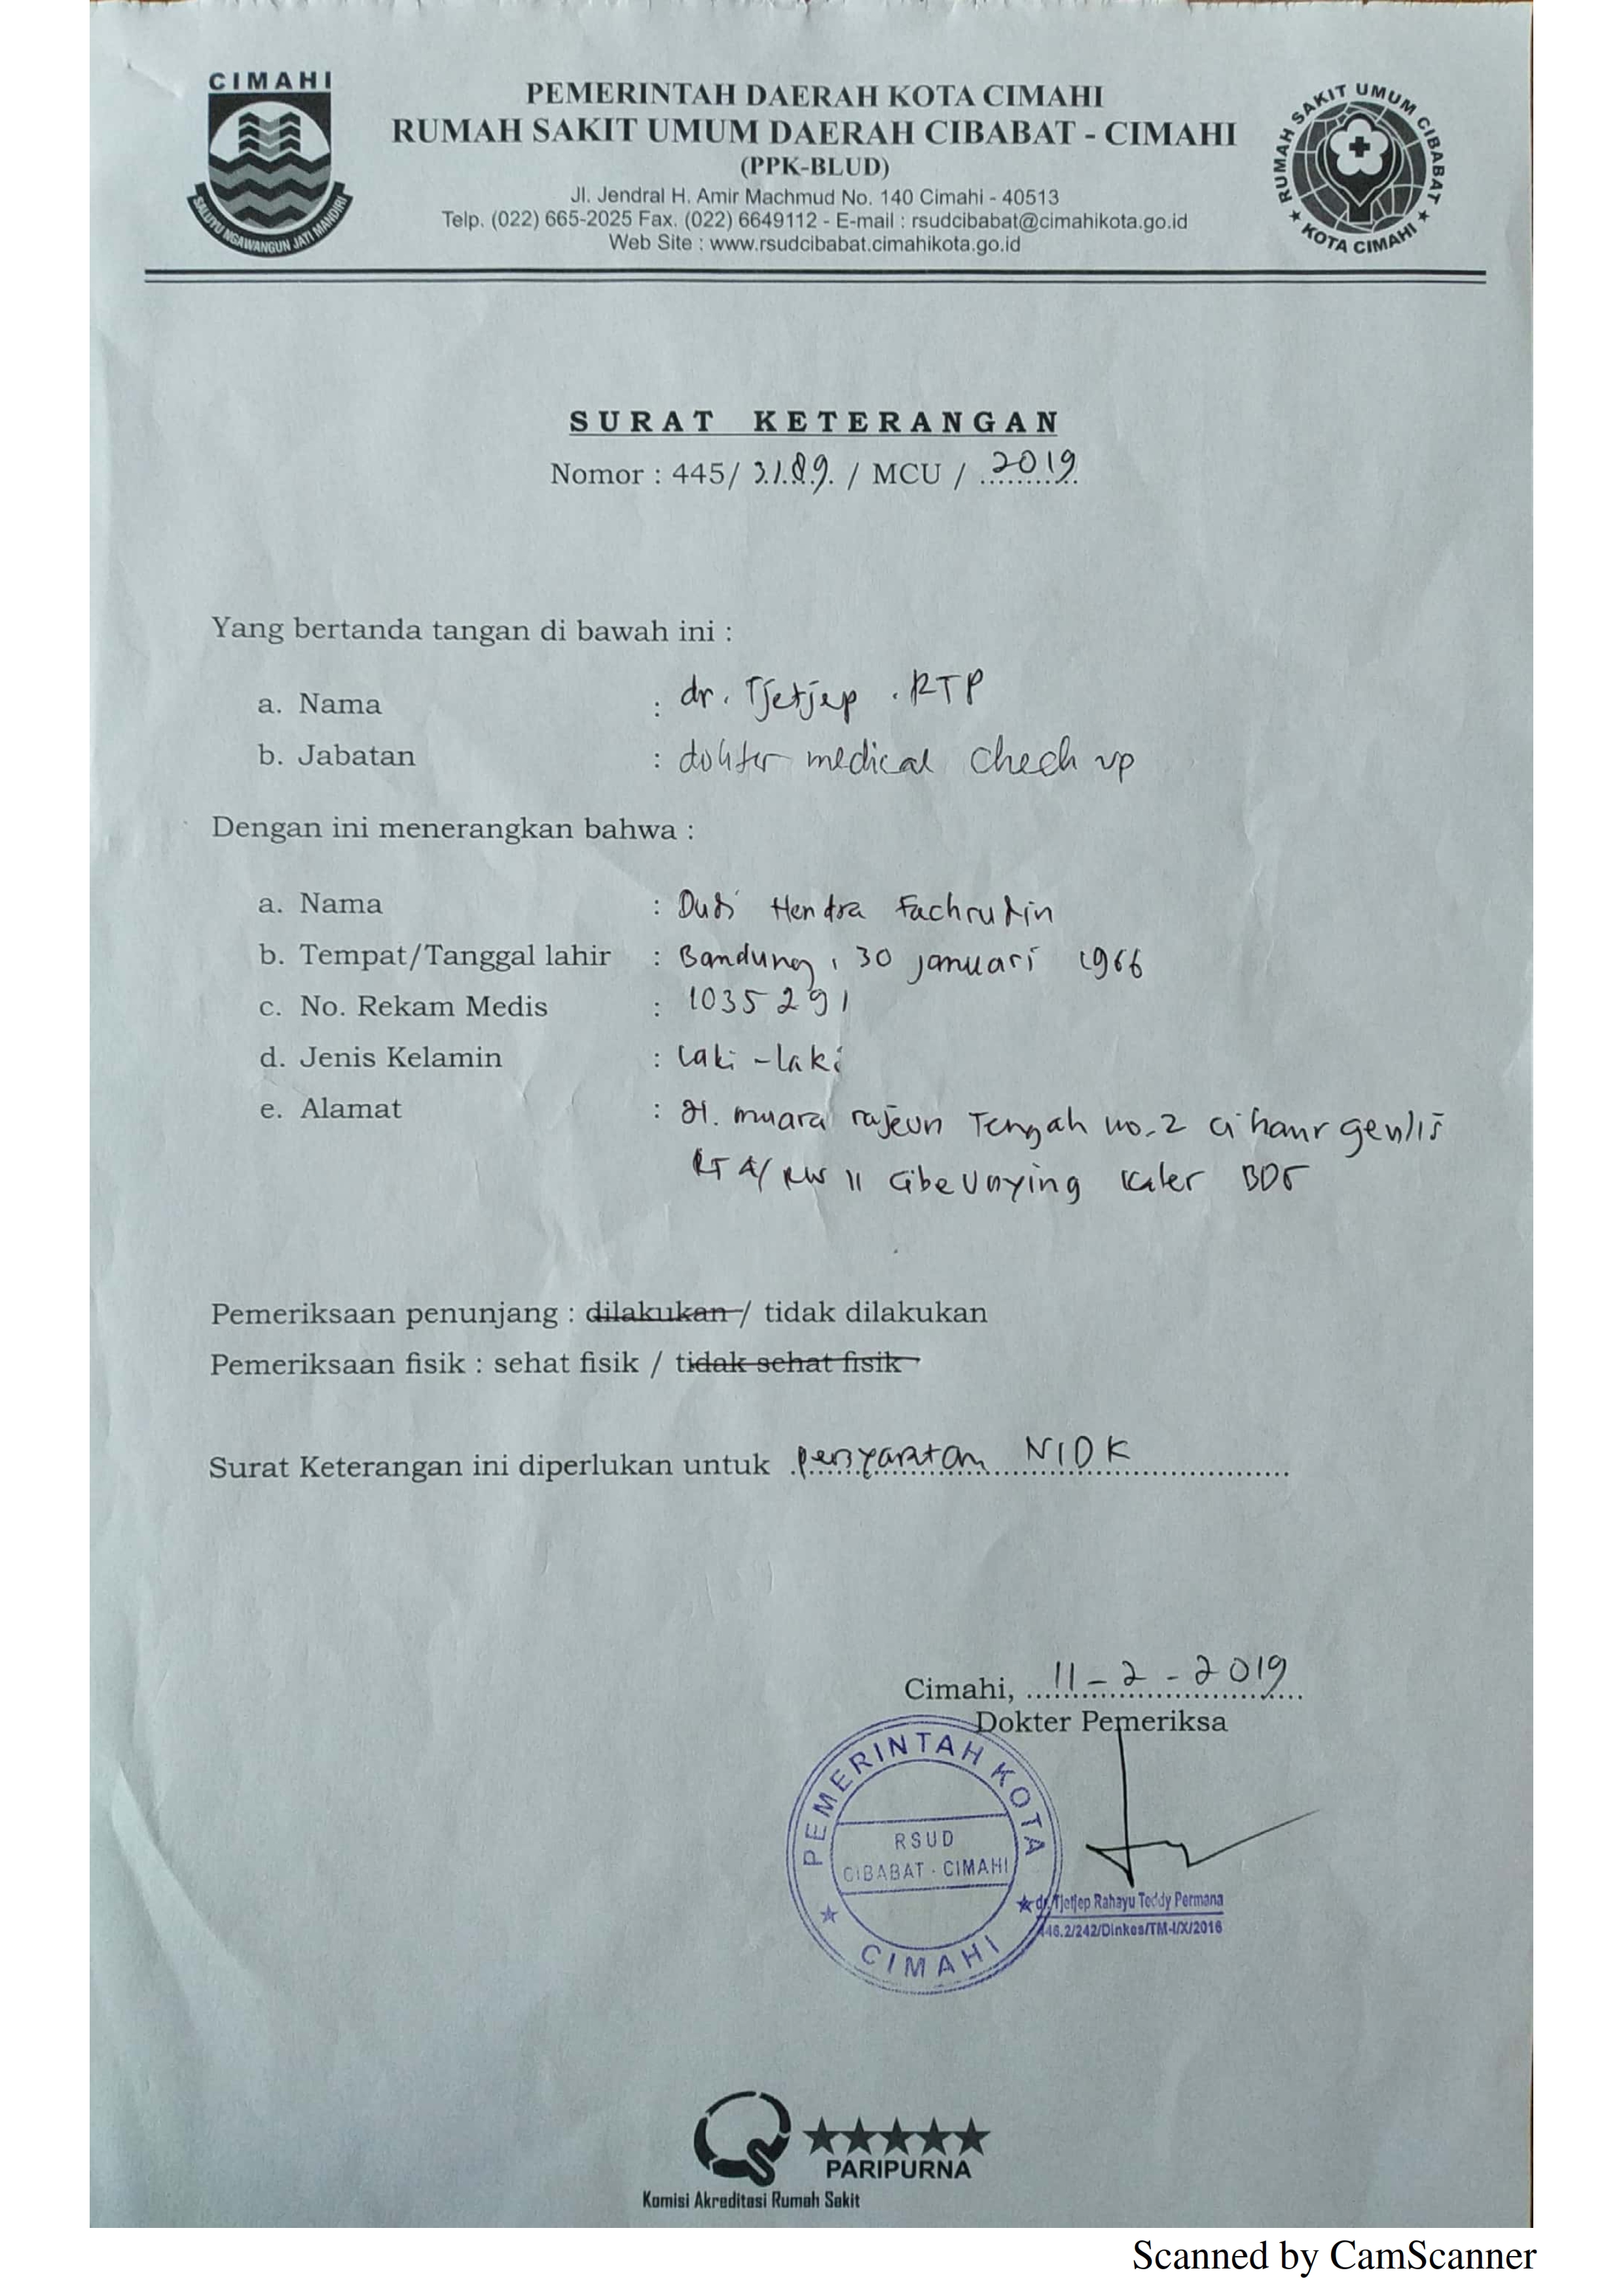 CIMAHI
SALUYU NGAWANGUN JATI MANDIRI
PEMERINTAH DAERAH KOTA CIMAHI
RUMAH SAKIT UMUM DAERAH CIBABAT - CIMAHI
(PPK-BLUD)
Jl. Jendral H. Amir Machmud No. 140 Cimahi - 40513
Telp. (022) 665-2025 Fax. (022) 6649112 - E-mail : rsudcibabat@cimahikota.go.id
Web Site : www.rsudcibabat.cimahikota.go.id
RUMAH SAKIT UMUM CIBABAT
KOTA CIMAHI
SURAT KETERANGAN
Nomor : 445/ 3189 / MCU / 2019
Yang bertanda tangan di bawah ini :
a. Nama : dr. Tjetjep . RTP
b. Jabatan : dokter medical Check up
Dengan ini menerangkan bahwa :
a. Nama : Dudi Hendra Fachrudin
b. Tempat/Tanggal lahir : Bandung, 30 januari 1966
c. No. Rekam Medis : 1035291
d. Jenis Kelamin : Laki-laki
e. Alamat : Jl. muara rajeun Tengah no. 2 Cihaur geulis
RT 4/ RW 11 Cibeunying Kaler BDG
Pemeriksaan penunjang : dilakukan / tidak dilakukan
Pemeriksaan fisik : sehat fisik / tidak sehat fisik
Surat Keterangan ini diperlukan untuk NIDK
Cimahi, 11-2-2019
Dokter Pemeriksa
PEMERINTAH KOTA
RSUD
CIBABAT - CIMAHI
CIMAHI
dr. Tjetjep Rahayu Teddy Permana
446.2/242/Dinkes/TM-I/X/2016
PARIPURNA
Komisi Akreditasi Rumah Sakit
Scanned by CamScanner